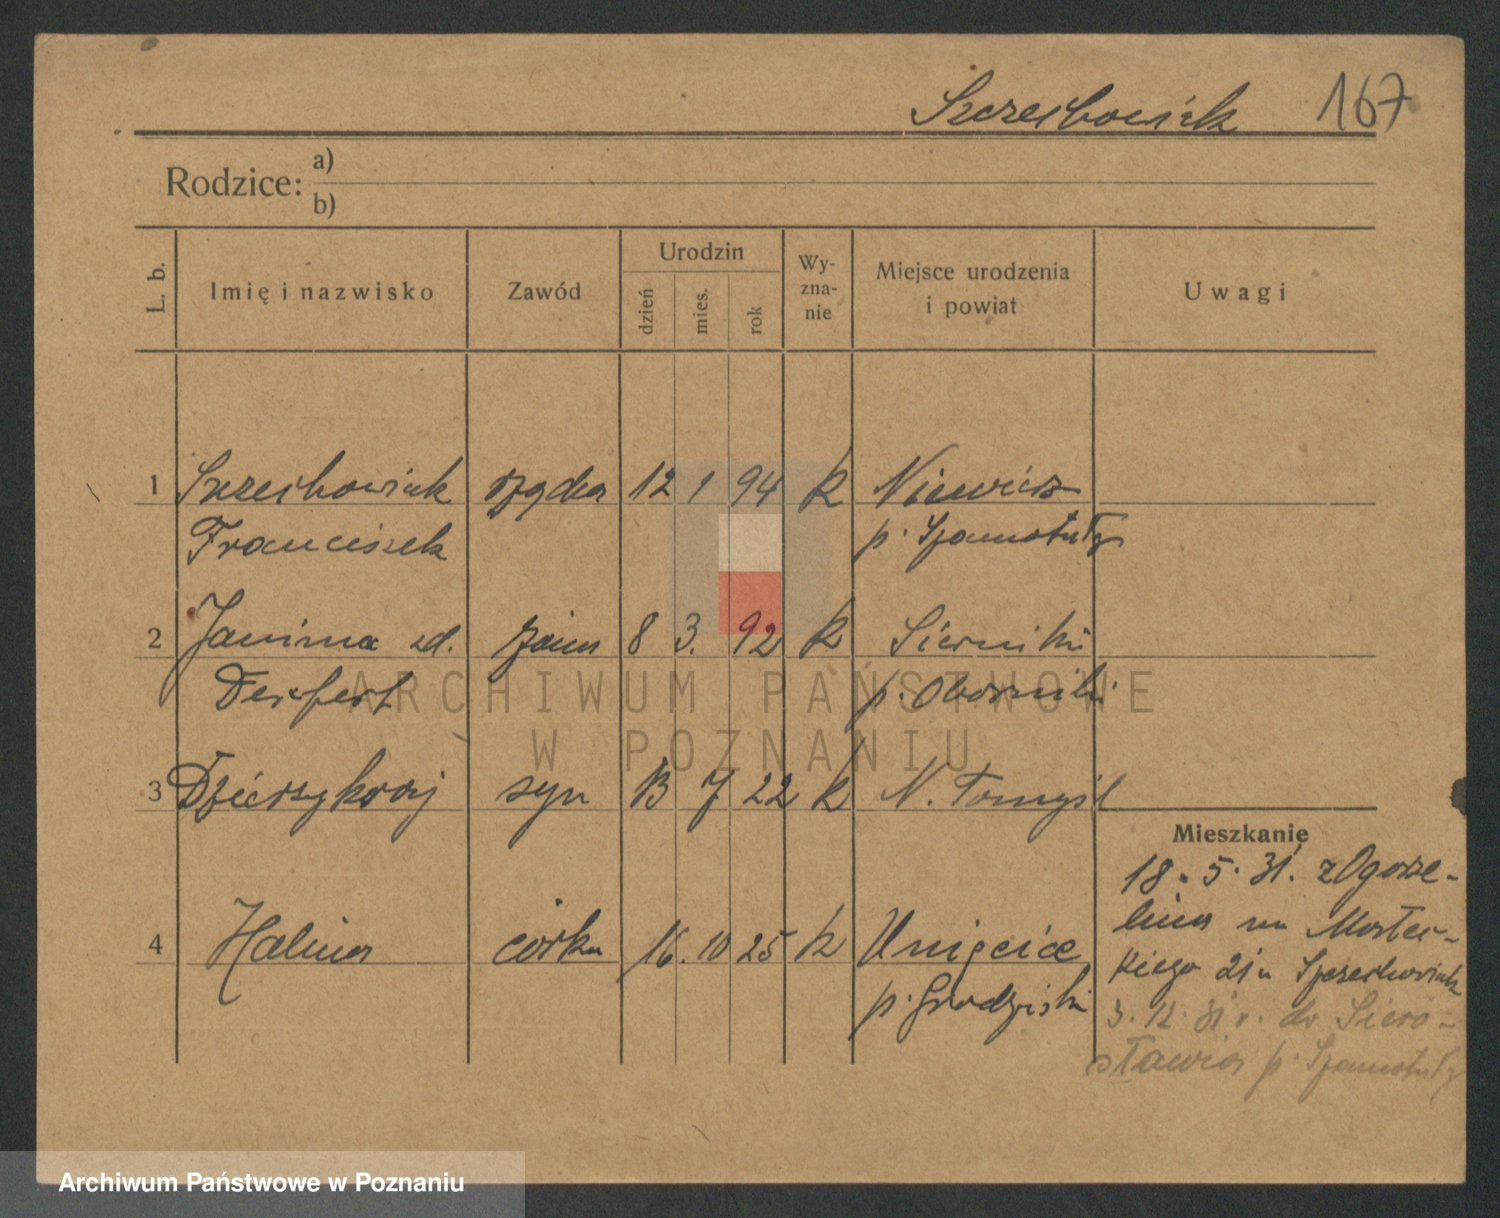 Szczechowiak 167
Rodzice: a)
b)
L. b. Imię i nazwisko Zawód Urodzin dzień mies. rok Wy-zna-nie Miejsce urodzenia i powiat Uwagi
1 Szczechowiak rządca 12 1 94 k Niewierz
Franciszek p. Szamotuły
2 Janina zd. żona 8 3. 92 k Sierniki
p. Oborniki
3 syn 13 7 22 k N. Tomyśl
Mieszkanie
18. 5. 31. z Ogorze-
lina na
4 Halina córka 16. 10 25 k
kiego 21 u Szczechowiak
p. Grodzisk
3. 12. 31 r. do Siero-
sławia p. Szamotuły
ARCHIWUM PAŃSTWOWE
W POZNANIU
Archiwum Państwowe w Poznaniu